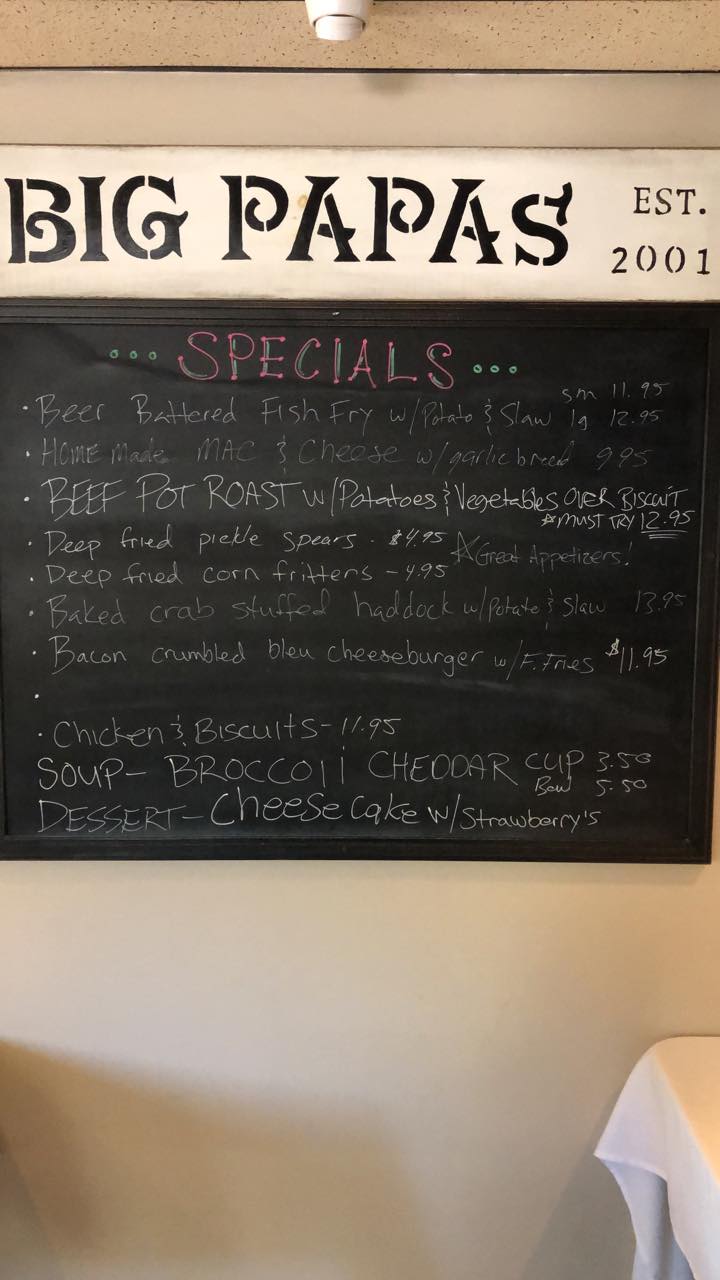 BIG PAPAS EST. 2001
... SPECIALS ...
· Beer Battered Fish Fry w/Potato & Slaw sm 11.95 lg 12.95
· HOMEMade MAC & Cheese w/garlic bread 9.95
· BEEF POT ROAST w/Potatoes & Vegetables OVER BISCUIT
☆MUST TRY 12.95
· Deep fried pickle spears - $4.95
☆Great Appetizers!
· Deep fried corn fritters - 4.95
· Baked crab stuffed haddock w/Potato & Slaw 13.95
· Bacon crumbled bleu cheeseburger w/F.Fries $11.95
·
· Chicken & Biscuits - 11.95
SOUP - BROCCOli CHEDDAR CUP 3.50
Bowl 5.50
DESSERT - Cheesecake w/Strawberry's